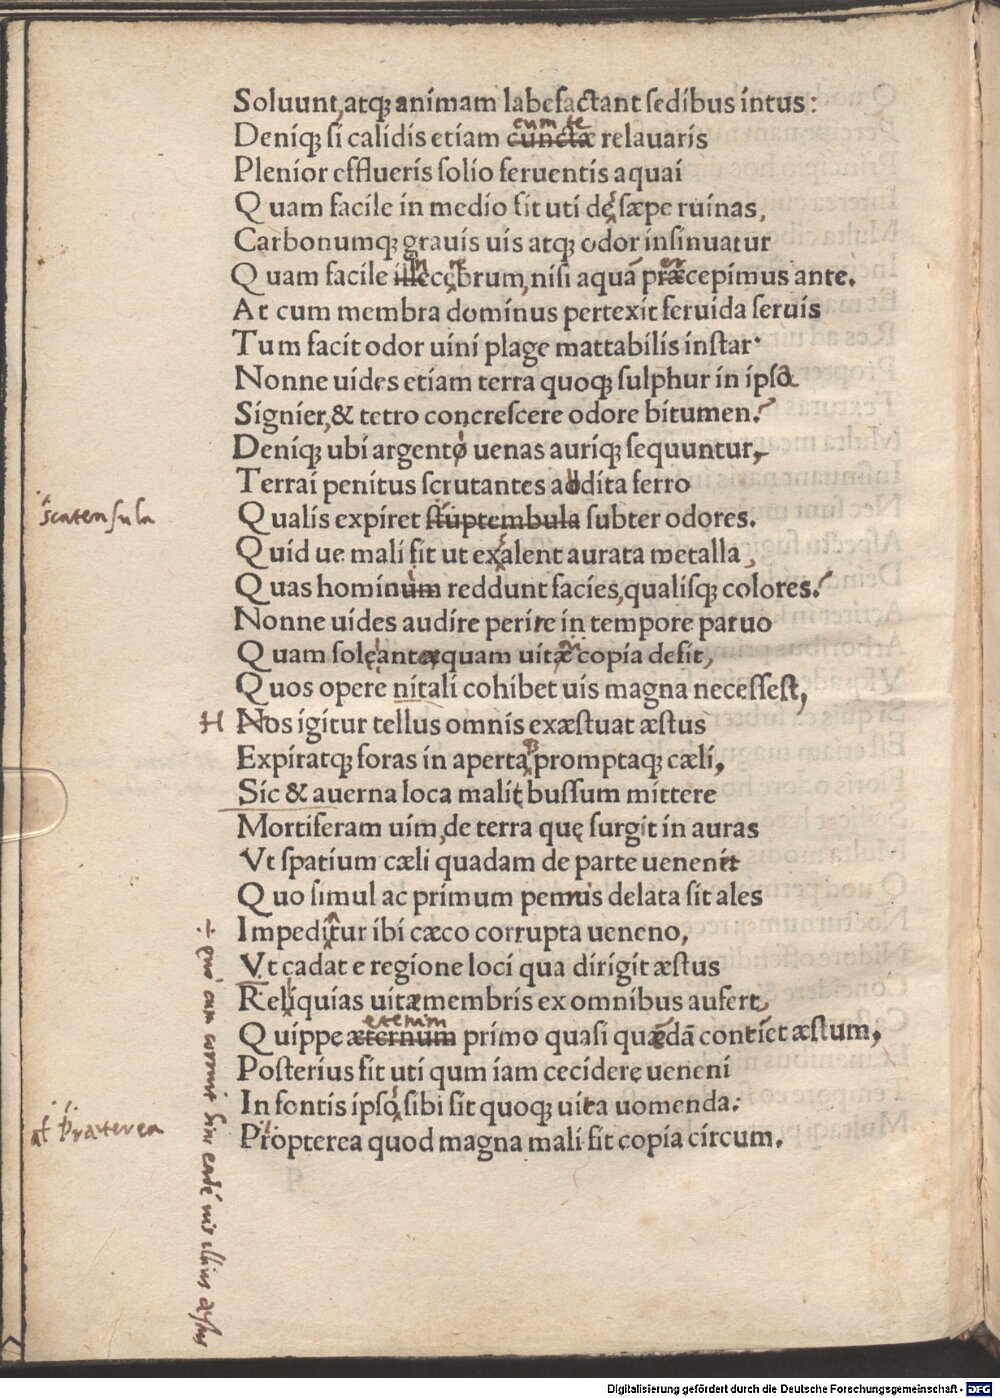 Soluunt,atqꝫ animam labefactant sedibus intus:
cum te
Deniqꝫ si calidis etiam cunctæ relauaris
Plenior efflueris solio feruentis aquai
Quam facile in medio fit uti dę sæpe ruinas,
Carbonumqꝫ grauis uis atqꝫ odor insinuatur
Quam facile illecębrum,nisi aquā præcepimus ante.
At cum membra dominus pertexit feruida seruis
Tum facit odor uini plage mattabilis instar·
Nonne uides etiam terra quoqꝫ sulphur in ipsa
Signier,& tetro concrescere odore bitumen.
Deniqꝫ ubi argento uenas auriqꝫ sequuntur,
Terrai penitus scrutantes abdita ferro
scatensula
Qualis expiret stuptembula subter odores.
Quid ue mali fit ut exalent aurata metalla,
Quas hominum reddunt facies,qualisqꝫ colores.
Nonne uides audire perire in tempore paruo
Quam soleant &quam uitæ copia desit,
Quos opere nitali cohibet uis magna necessest,
H Nos igitur tellus omnis exæstuat æstus
Expiratqꝫ foras in aperta promptaqꝫ cæli,
Sic & auerna loca malit bussum mittere
Mortiferam uim,de terra quę surgit in auras
Vt spatium cæli quadam de parte uenenit
Quo simul ac primum pennis delata sit ales
Impeditur ibi cæco corrupta ueneno,
Vt cadat e regione loci qua dirigit æstus
Reliquias uitæ membris ex omnibus aufert,
etenim
Quippe æternum primo quasi quædā contiet æstum,
Posterius fit uti qum iam cecidere ueneni
In fontis ipso sibi fit quoqꝫ uita uomenda:
Præterea
Propterea quod magna mali fit copia circum.
cum corruit hinc eadē uis illius æstus
Digitalisierung gefördert durch die Deutsche Forschungsgemeinschaft - DFG